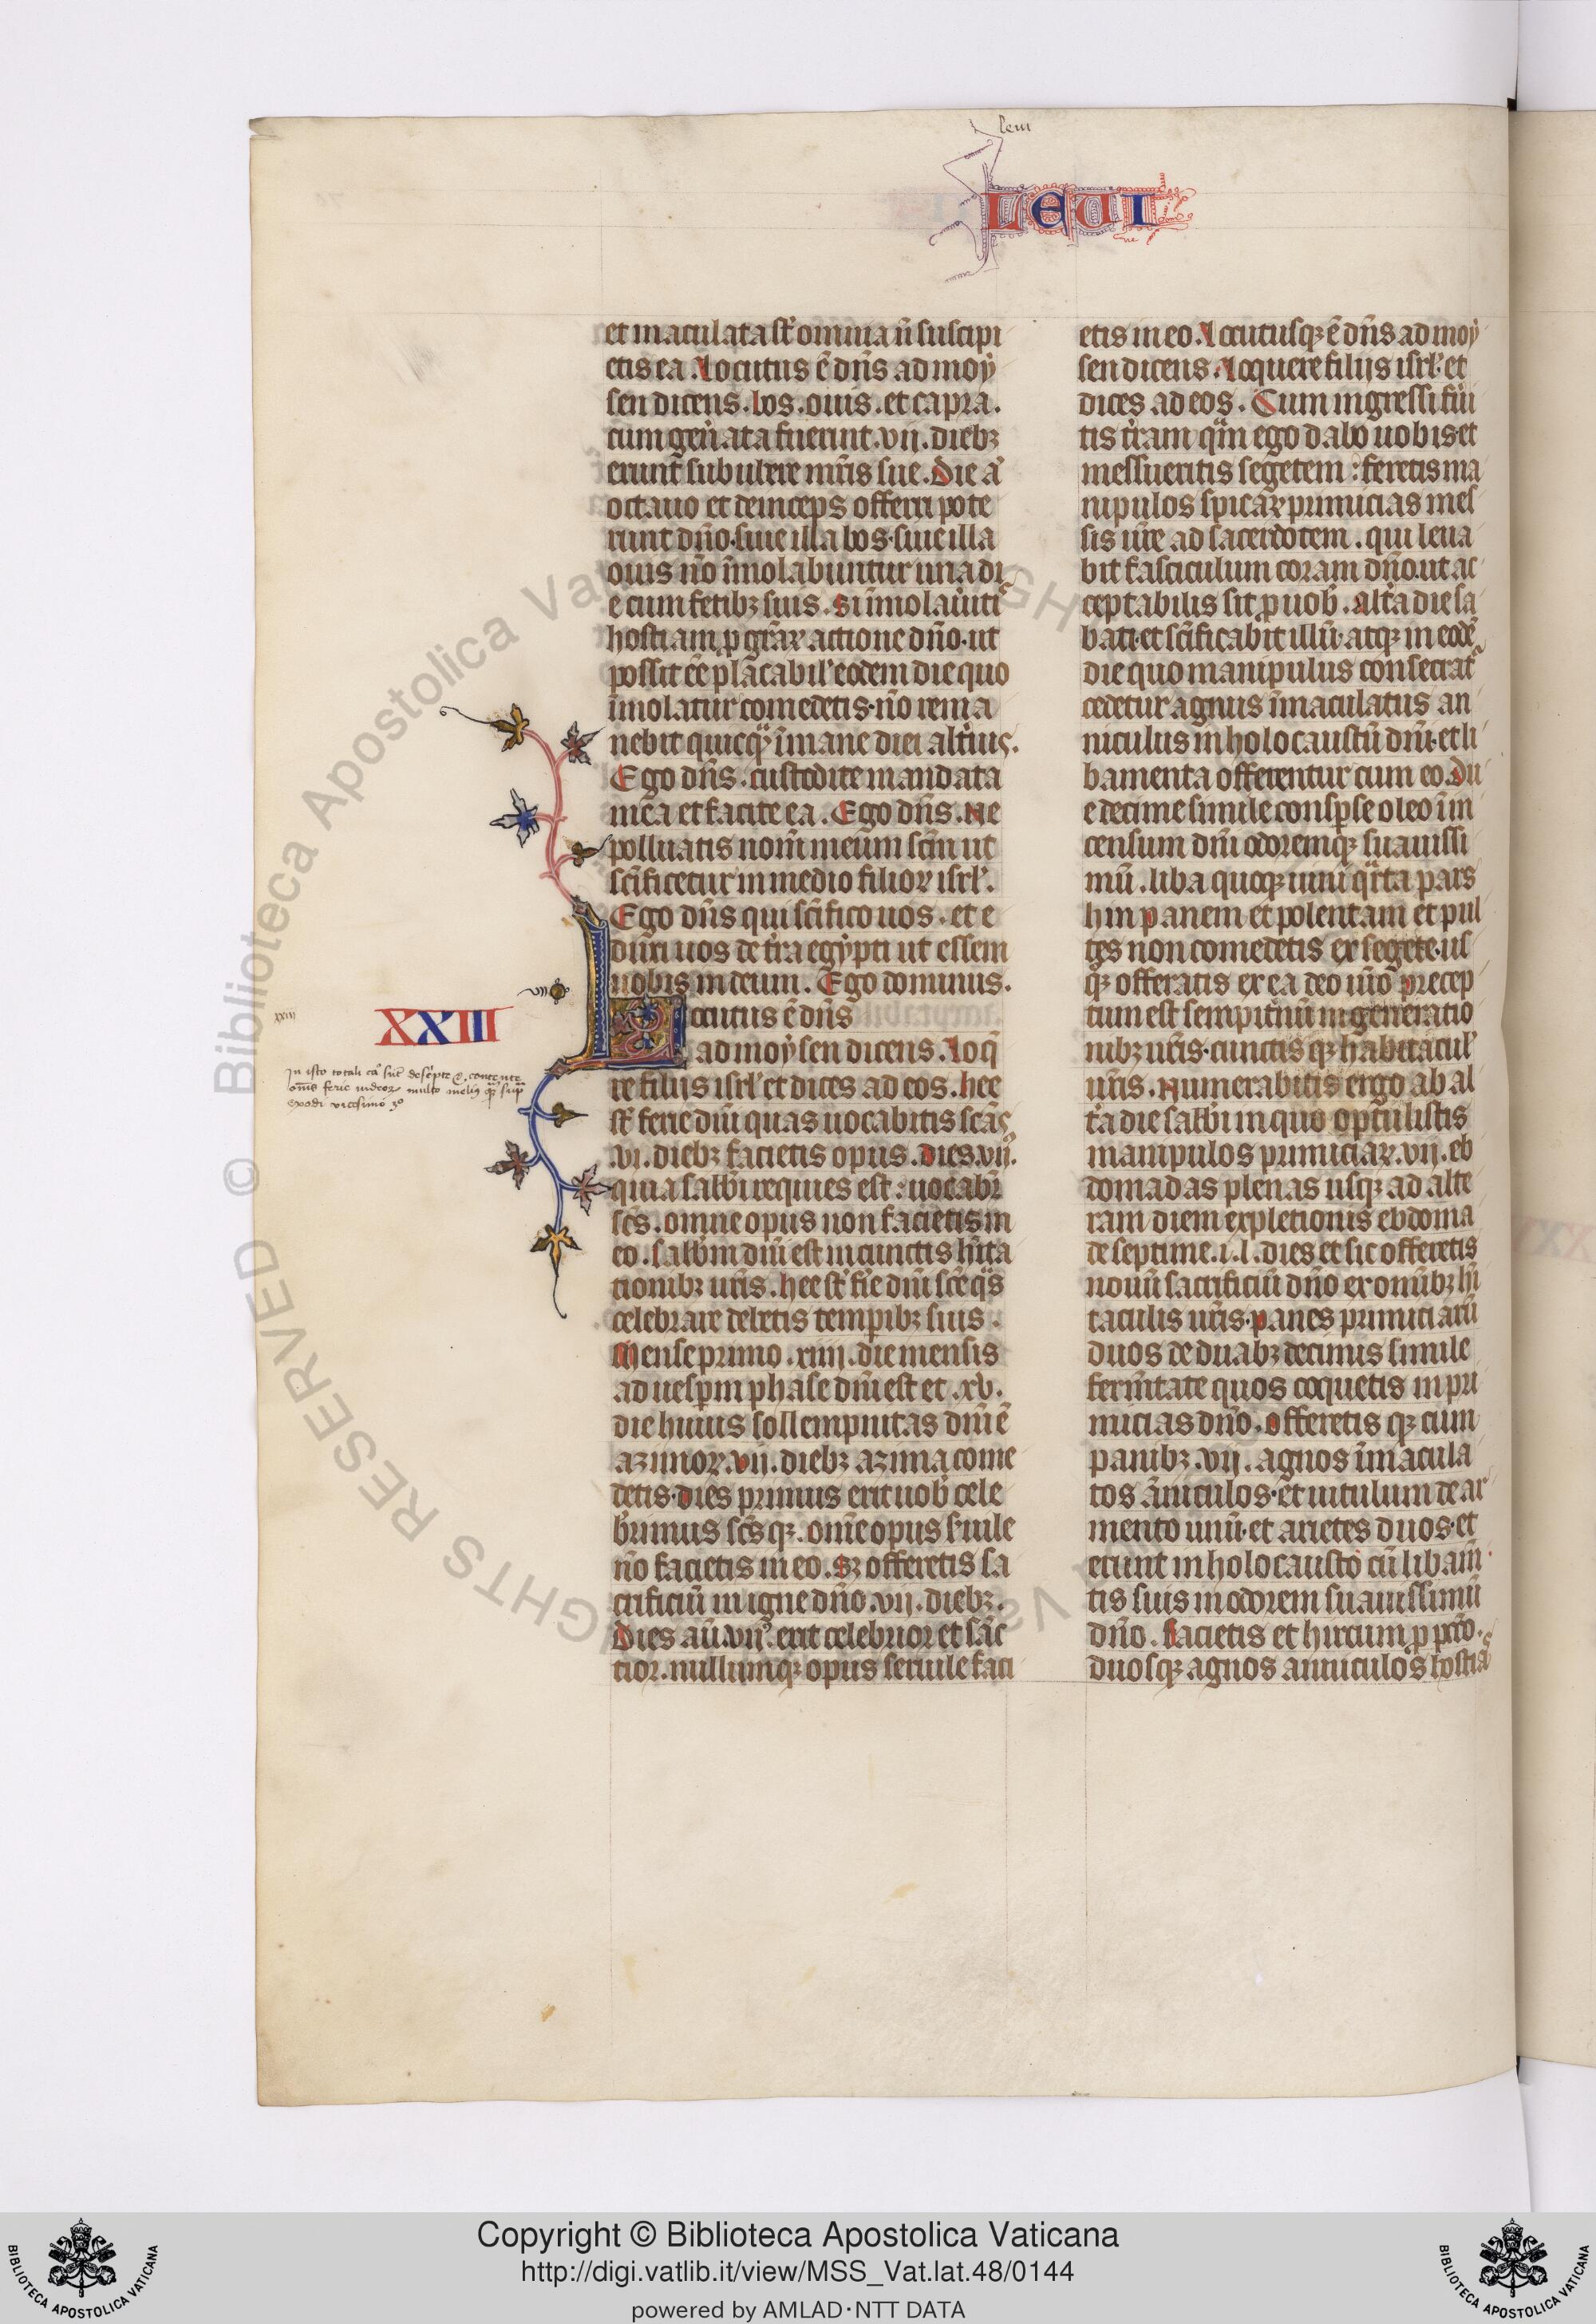 leui
LEUI
et maculata st̄ omnia n̄ suscipi
etis ea. Locutus ē dn̄s ad moy
sen dicens. bos. ouis. et capra.
cum gen̄ata fuerint. vij. dieb;
erunt sub ubere mr̄is sue. Die aū
octauo et deinceps offerri pote
runt dn̄o. siue illa bos. siue illa
ouis nō īmolabuntur una di
e cum fetib; suis. Si īmolau̓iti
hostiam p gr̄aꝝ actione dn̄o. ut
possit eē placabil' eodem die quo
īmolatur comedetis. nō rema
nebit quicq̄ȝ ī mane diei alt̓ius.
Ego dn̄s. custodite mandata
mea et facite ea. Ego dn̄s. Ne
polluatis nom̄ meum sc̄m ut
sc̄ificetur in medio filioꝝ isrl'.
Ego dn̄s qui sc̄ifico uos. et e
duxi uos de t̓ra egypti ut essem
uobis in deum. Ego dominus.
XXIII
xxiii
Locutus ē dn̄s
ad moysen dicens. Loq̄
re filijs isrl' et dices ad eos. hee
st̄ ferie dn̄i quas uocabitis scās
.vi. dieb; facietis opus. Dies. vij.
quia sabb̄i requies est: uocabr̄
sc̄s. omne opus non facietis in
eo. sabb̄m dn̄i est in cunctis hīta
tionib; ur̄is. hee st̄ fīe dn̄i sc̄e q̄s
celebrare debetis tempib; suis.
Mense primo. xiiij. die mensis
ad uesp̄m phase dn̄i est et .xv.
die huius sollempnitas dn̄i ē
azimoꝝ. vij. dieb; azima come
detis. Dies primus erit uob̄ cele
b̓rimus sc̄sq;. om̄e opus s̓uile
nō facietis in eo. S; offeretis sa
crificiū in igne dn̄o. vij. dieb;.
Dies aū. vij. erit celebrior et sāc
tior. nullumq; opus seruile faci
etis in eo. Locutusq; ē dn̄s ad moy
sen dicens. Loquere filijs isrl'. et
dices ad eos. Cum ingressi fu̓i
tis t̓ram q̄m ego dabo uobis. et
messueritis segetem: feretis ma
nipulos spicaꝝ primicias mes
sis ur̄e ad sacerdotem. qui leua
bit fasciculum coram dn̄o. ut ac
ceptabilis sit p uob̄. alt̓a die sa
bati. et sc̄ificabit illū. atq; in eodē
die quo manipulus consecrat̓
cedetur agnus īmaculatus an
niculus in holocaustū dn̄i. et li
bamenta offerentur cum eo. Du
e decime simile consp̓se oleo ī in
censum dn̄i odoremq; suauissi
mū. liba quoq; uini q̄rta pars
hin panem et polentam et pul
tes non comedetis ex segete. us
q; offeratis ex ea deo ur̄o precep
tum est sempit̓nū in generatio
nib; ur̄is. cunctisq; habitacul'
ur̄is. Numerabitis ergo ab al
t̓a die sabb̄i in quo optulistis
manipulos primiciaꝝ. vij. eb
domadas plenas usq; ad alte
ram diem expletionis ebdoma
de septime. i. l. dies et sic offeretis
nouū sacrificiū dn̄o ex om̄ib; hī
taculis ur̄is. panes primiciarū
duos de duab; decimis simile
ferm̄tate quos coquetis in pri
micias dn̄o. offeretisq; cum
panib;. vij. agnos īmacula
tos āniculos. et uitulum de ar
mento unū. et arietes duos. et
erunt in holocausto cū libam̄
tis suis in odorem suauissimū
dn̄o. Facietis et hircum p pctō.
duosq; agnos anniculos hostias
In isto totali ca° sūt descripte & contente
om̄s ferie iudeoꝝ multo meliꝰ q̄ȝ sup̄
exodi vicesimo 3°
© Biblioteca Apostolica Vaticana
RIGHTS RESERVED
Copyright © Biblioteca Apostolica Vaticana
http://digi.vatlib.it/view/MSS_Vat.lat.48/0144
powered by AMLAD·NTT DATA
BIBLIOTECA APOSTOLICA VATICANA
BIBLIOTECA APOSTOLICA VATICANA